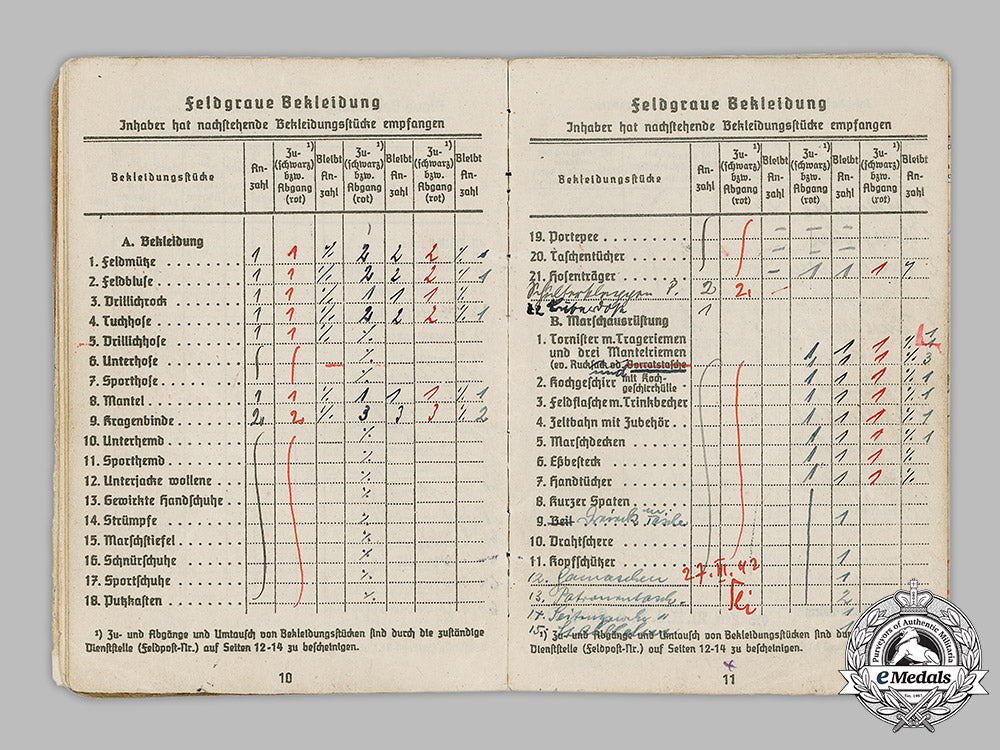 Feldgraue Bekleidung
Inhaber hat nachstehende Bekleidungsstücke empfangen
Bekleidungsstücke
An-zahl
Zu- ¹) (schwarz) bzw. Abgang (rot)
Bleibt An-zahl
Zu- ¹) (schwarz) bzw. Abgang (rot)
Bleibt An-zahl
Zu- ¹) (schwarz) bzw. Abgang (rot)
Bleibt An-zahl
A. Bekleidung
1. Feldmütze 1 1 ⁒ 2 2 2 ⁒ 1
2. Feldbluse 1 1 ⁒ 2 2 2 ⁒ 1
3. Drillichrock 1 1 ⁒ 1 1 1 ⁒
4. Tuchhose 1 1 ⁒ 2 2 2 ⁒ 1
5. Drillichhose 1 1 ⁒ ⁒
6. Unterhose ⁒
7. Sporthose ⁒
8. Mantel 1 1 ⁒ 1 1 1 ⁒ 1
9. Kragenbinde 2 2 ⁒ 3 3 3 ⁒ 2
10. Unterhemd ⁒
11. Sporthemd ⁒
12. Unterjacke wollene ⁒
13. Gewirkte Handschuhe ⁒
14. Strümpfe ⁒
15. Marschstiefel ⁒
16. Schnürschuhe ⁒
17. Sportschuhe ⁒
18. Putzkasten ⁒
¹) Zu- und Abgänge und Umtausch von Bekleidungsstücken sind durch die zuständige
Dienststelle (Feldpost-Nr.) auf Seiten 12-14 zu bescheinigen.
10
Feldgraue Bekleidung
Inhaber hat nachstehende Bekleidungsstücke empfangen
Bekleidungsstücke
An-zahl
Zu- ¹) (schwarz) bzw. Abgang (rot)
Bleibt An-zahl
Zu- ¹) (schwarz) bzw. Abgang (rot)
Bleibt An-zahl
Zu- ¹) (schwarz) bzw. Abgang (rot)
Bleibt An-zahl
19. Portepee
20. Taschentücher
21. Hosenträger - 1 1 1
Schulterklappen P. 2 2 -
22 1
B. Marschausrüstung
1. Tornister m. Trageriemen
und drei Mantelriemen 1 1 1 ⁒
(ev. Rucksack od. Vorratstasche 1 1 1 ⁒ 3
2. Kochgeschirr und mit Koch-geschirrhülle 1 1 1 ⁒ 1
3. Feldflasche m. Trinkbecher 1 1 1 ⁒ 1
4. Zeltbahn mit Zubehör 1 1 1 ⁒ 1
5. Marschdecken 1 1 1 ⁒ 1
6. Eßbesteck 1 1 1 ⁒
7. Handtücher 1 1 1 ⁒
8. Kurzer Spaten
9. Beil 1
10. Drahtschere
11. Kopfschützer 1
12. Gamaschen 1
27. III. 42
13. Patronentasch. 2
14. 1
15. 1
¹) Zu- und Abgänge und Umtausch von Bekleidungsstücken sind dur
Dienststelle (Feldpost-Nr.) auf Seiten 12-14 zu bescheinigen.
11
Purveyors of Authentic Militaria
eMedals